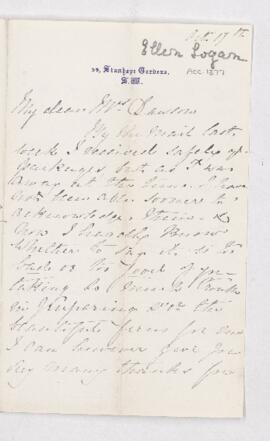 Oct. 17th
Ellen Logan
ACC 1377
Stanhope Gardens,
S.W.
My dear Mrs Dawson
By the mail last
week I received safely
packages but as I was
away at the time I have
not been able sooner to
acknowledge them &
now I hardly know
whether to say it is too
bad or too good of you
taking so much trouble
in preparing the
beautiful ferns for me
I can however give you
very many thanks for